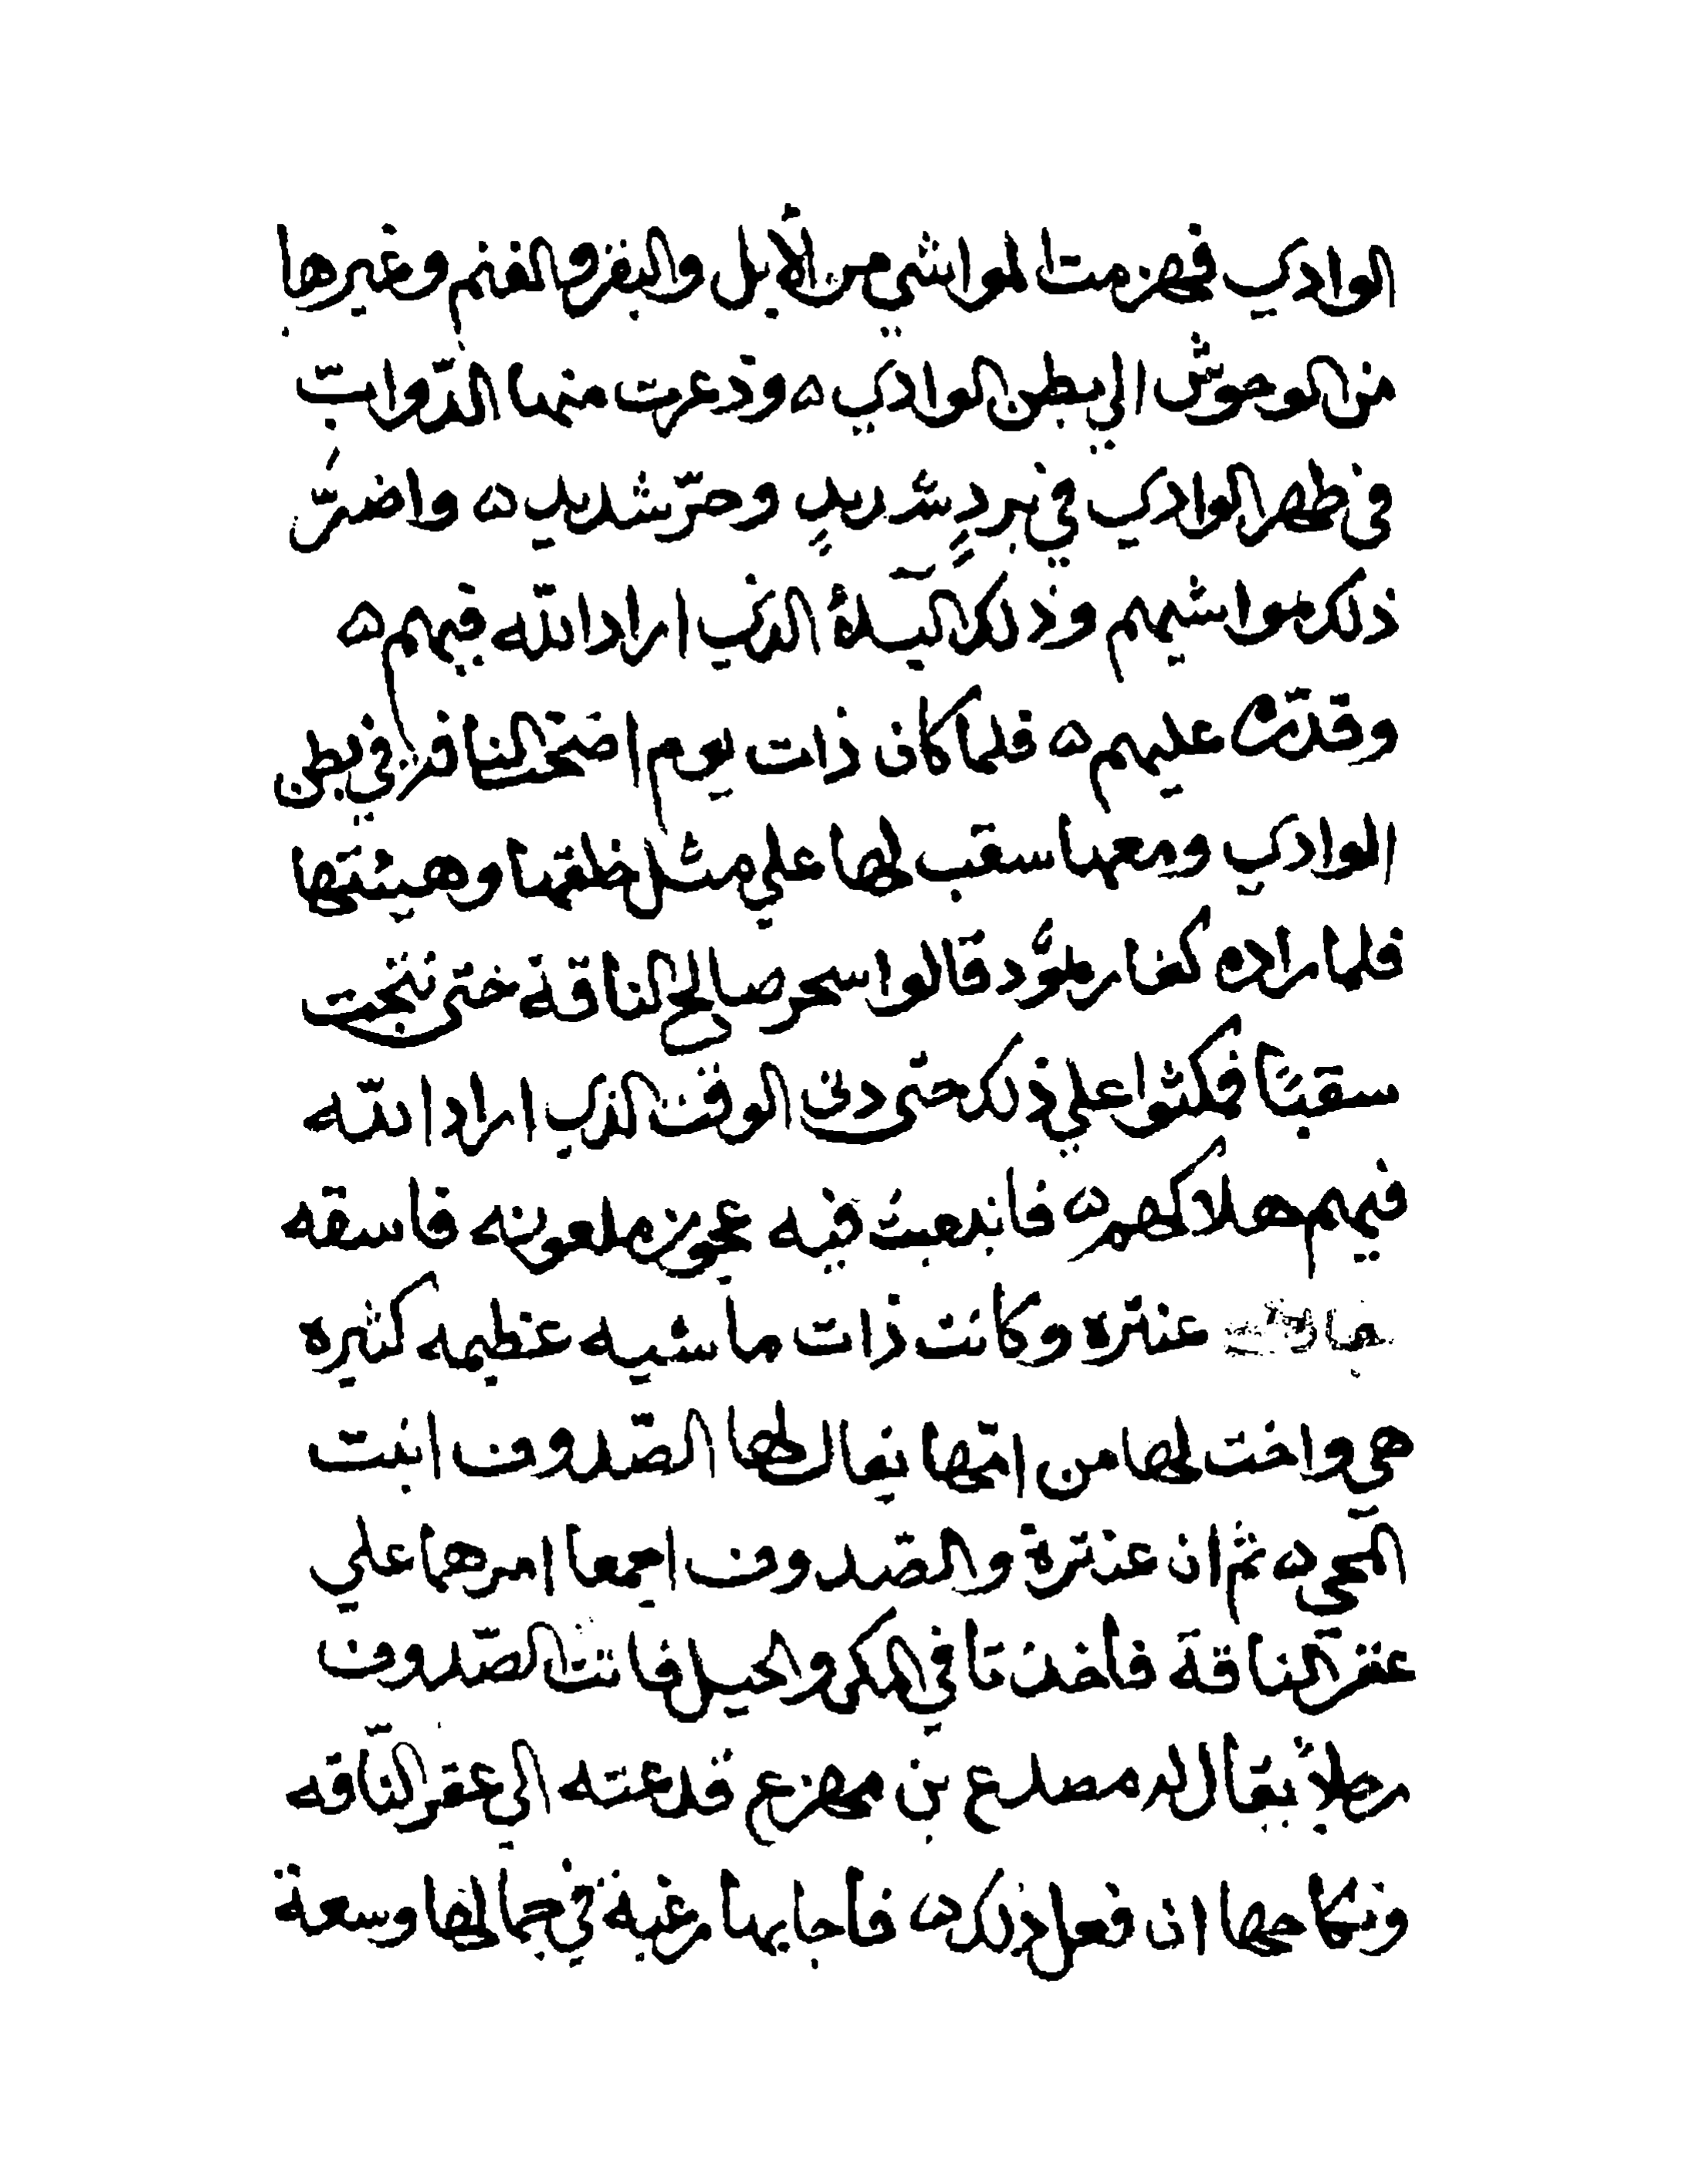 الوادي فهزمت المواشي من الأبل والبقر والغنم وغيرها
من الوحوش الي بطن الوادي ۵ وذعرت منها الدّوابّ
في ظهر الوادي في بردٍ شديدٍ وحرّ شديد ۵ واضرّ
ذلك مواشيهم وذلك البلاۤءُ الذي اراد الله فيهم ۵
وقدّرَ عليهم ۵ فلما كان ذات يوم اضحت الناقة في بطن
الوادي ومعها سقب لها علي مثل خلقها وهيئتها
فلما راده كفار ثمُّود قالوا سحر صالح الناقة حتى نتجت
سقبًا فمكثوا علي ذلك حتى دنى الوقت الذي اراد الله
فيهم هلاكهم ۵ فانبعثت فيه عجوز ملعونه فاسقه
عنتره وكانت ذات ماشيه عظيمه كثيره
هي واخت لها من امّها يقال لها الصّدوف ابنت
المحي ۵ ثم ان عنترة والصّدوف اجمعا امرهما علي
عقر الناقة فأخذتا في المكر والحيل فاتت الصّدوف
رجلاً يقال له مصدع بن مهزع فدعته الي عقر النّاقه
ونكاحها ان فعل ذلك ۵ فأجابها رغبة في جمالها وسعة